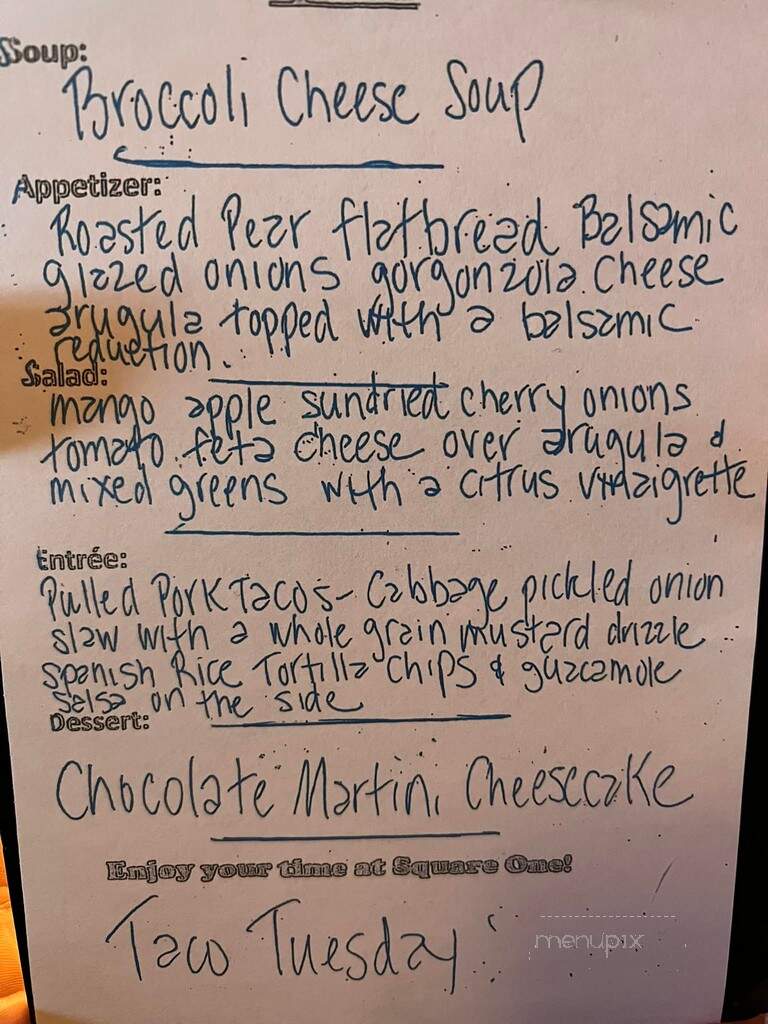 Soup:
Broccoli Cheese Soup
Appetizer:
Roasted Pear flatbread Balsamic
glazed onions gorgonzola cheese
arugula topped with a balsamic
reduction.
Salad:
mango apple sundried cherry onions
tomato feta cheese over arugula &
mixed greens with a citrus
Entrée:
Pulled Pork Tacos- Cabbage pickled onion
slaw with a whole grain mustard drizzle
spanish Rice Tortilla chips & guacamole
salsa on the side
Dessert:
Chocolate Martini Cheesecake
Enjoy your time at Square One!
Taco Tuesday
menupix